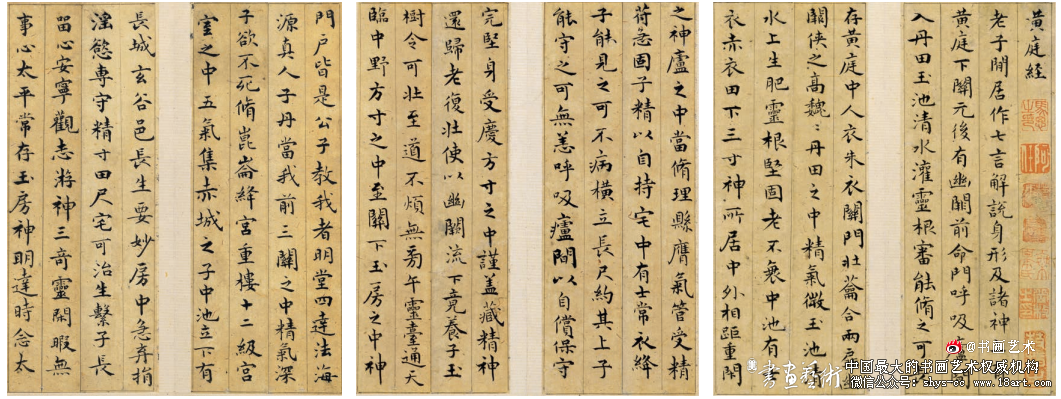 黄庭経
老子閑居作七言解說身形及諸神
黄庭下關元後有幽關前命門呼吸
入丹田玉池清水灌靈根審能脩之可
存黄庭中人衣朱衣關門壯蘥合兩
關侠之高巍〻丹田之中精氣微玉池清
水上生肥靈根堅固老不衰中池有
衣赤衣田下三寸神所居中外相距重閉
之神廬之中當脩理懸膺氣管受精
苻急固子精以自持宅中有士常衣絳
子能見之可不病橫立長尺約其上子
能守之可無恙呼吸廬間以自償保守
完堅身受慶方寸之中謹盖藏精神
還歸老復壯使以幽關流下竟養子玉
樹令可壯至道不煩無旁午靈臺通天
臨中野方寸之中至關下玉房之中神
門戶皆是公子教我者明堂四達法海
源真人子丹當我前三關之中精氣深
子欲不死脩崑崙絳宮重樓十二級宮
室之中五氣集赤城之子中池立下有
長城玄谷邑長生要妙房中急弃捐
淫慾專守精寸田尺宅可治生繫子長
留心安寧觀志游神三竒靈閑暇無
事心太平常存玉房神明達時念太
@书画艺术
書畫藝術
中国最大的书画艺术权威机构
微信公众号：shys-cc www.18art.com